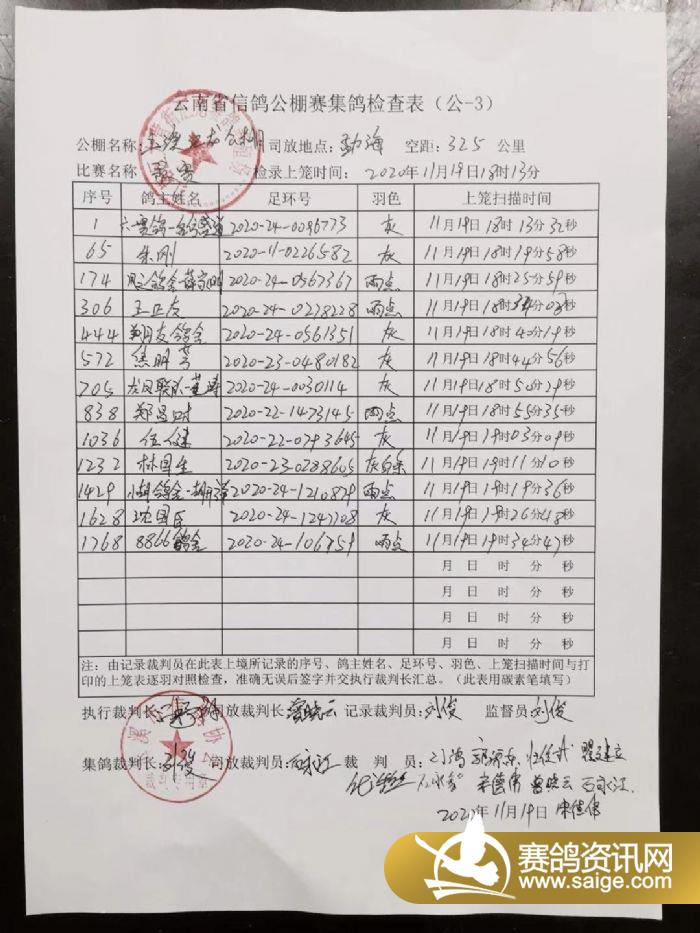 云南省信鸽公棚赛集鸽检查表（公-3）
公棚名称: 司放地点: 勐海 空距: 325 公里
比赛名称: 决赛 检录上笼时间: 2020年11月19日18时13分
序号 鸽主姓名 足环号 羽色 上笼扫描时间
1 2020-24-0096773 灰 11月19日18时13分32秒
65 朱刚 2020-11-0226582 灰 11月19日18时19分58秒
174 2020-24-0567367 雨点 11月19日18时25分59秒
306 王正友 2020-24-0278228 雨点 11月19日18时 分03秒
444 翔友鸽舍 2020-24-0561351 灰 11月19日18时40分19秒
572 焦明 2020-23-0480182 灰 11月19日18时44分56秒
705 2020-24-0030114 灰 11月19日18时50分29秒
838 郑昌 2020-22-1473145 雨点 11月19日18时55分35秒
1036 任健 2020-22-0793645 灰 11月19日19时03分09秒
1232 林国生 2020-23-0288605 灰白条 11月19日19时11分10秒
1429 2020-24-1210829 雨点 11月19日19时19分36秒
1628 沈国臣 2020-24-1247708 灰 11月19日19时26分48秒
1768 8866鸽舍 2020-24-106759 雨点 11月19日19时34分47秒
月 日 时 分 秒
月 日 时 分 秒
月 日 时 分 秒
月 日 时 分 秒
注：由记录裁判员在此表上境所记录的序号、鸽主姓名、足环号、羽色、上笼扫描时间与打
印的上笼表逐羽对照检查，准确无误后签字并交执行裁判长汇总。（此表用碳素笔填写）
执行裁判长: 司放裁判长: 曾晓云 记录裁判员: 刘俊 监督员: 刘俊
集鸽裁判长: 刘俊 司放裁判员: 裁 判 员: 瞿建立
宋德伟 曾晓云
2020年11月19日 宋德伟
赛鸽资讯网
www.saige.com